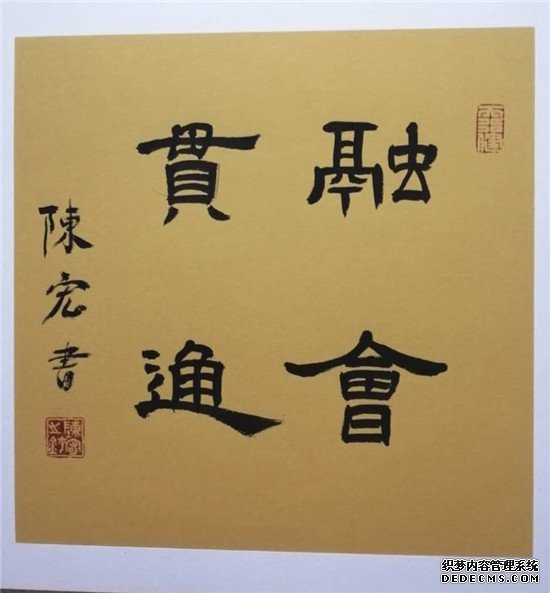 融會
貫通
陳宏書
织梦内容管理系统
DEDECMS.COM